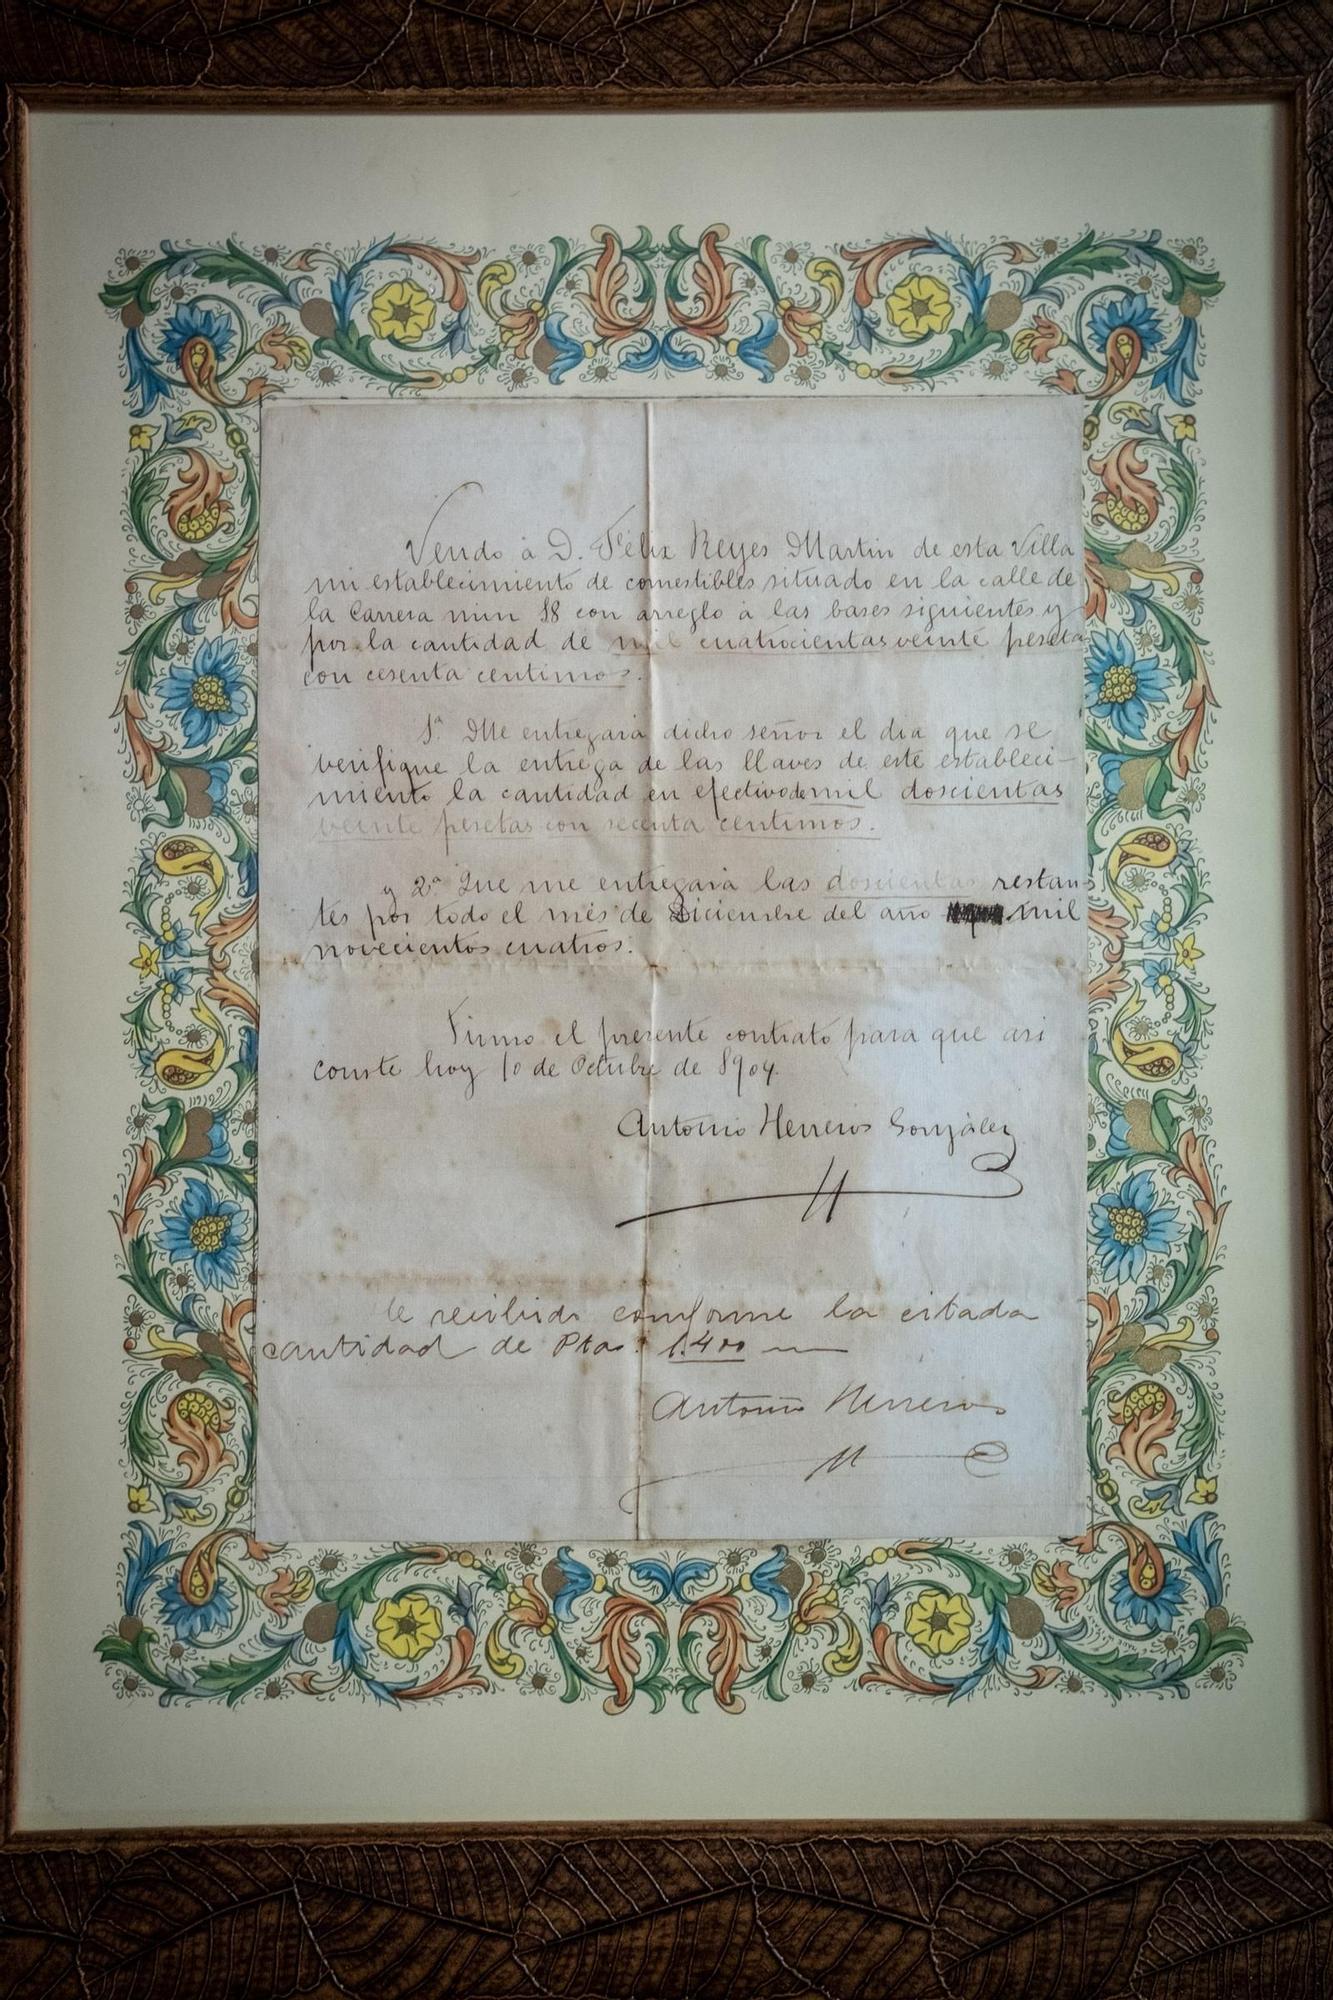 Vendo á D. Félix Reyes Martin de esta Villa
mi establecimiento de comestibles situado en la calle de
la Carrera num 18 con arreglo á las bases siguientes y
por la cantidad de mil cuatrocientas veinte peseta
con cesenta centimos.
1ª. Me entregará dicho señor el dia que se
verifique la entrega de las llaves de este estableci-
miento la cantidad en efectivo de mil doscientas
veinte pesetas con secenta centimos.
y 2ª Que me entregará las doscientas restan-
tes por todo el més de Diciembre del año mil
novecientos cuatros.
Firmo el presente contrato para que asi
conste hoy 10 de Octubre de 1904.
Antonio Herreros González
H
e recibido conforme la citada
cantidad de Ptas. 1.400
Antonio Herreros